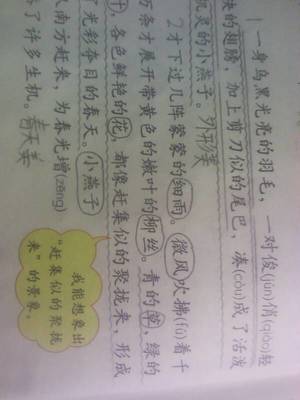 1 一身乌黑光亮的羽毛，一对俊(jùn)俏(qiào)轻
快的翅膀，加上剪刀似的尾巴，凑(còu)成了活泼
机灵的小燕子。外形美
2 才下过几阵蒙蒙的细雨。微风吹拂(fú)着千
万条才展开带黄色的嫩叶的柳丝。青的草，绿的
叶，各色鲜艳的花，都像赶集似的聚拢来，形成
了光彩夺目的春天。小燕子
南方赶来，为春光增(zēng)
了许多生机。春天美
我能想象出
“赶集似的聚拢
来”的景象。